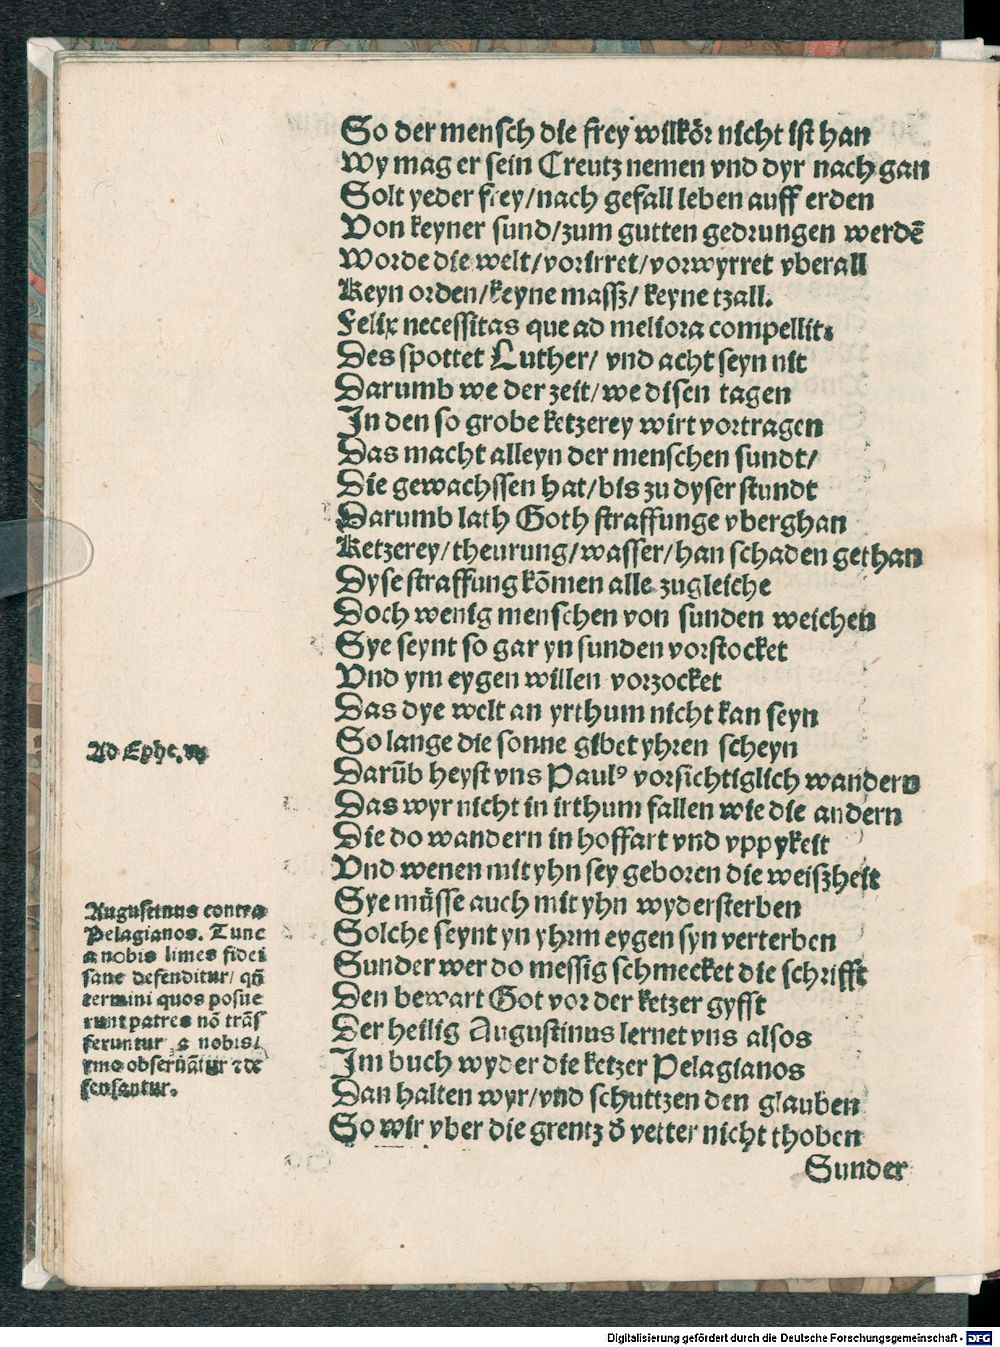 So der mensch die frey wilkör nicht ist han
Wy mag er sein Creutz nemen vnd dyr nach gan
Solt yeder frey/nach gefall leben auff erden
Von keyner sund/zum gutten gedrungen werdē
Worde die welt/vorirret/vorwyrret vberall
Keyn orden/keyne massz/ keyne tzall.
Felix necessitas que ad meliora compellit:
Des spottet Luther/ vnd acht seyn nit
Darumb we der zeit/we disen tagen
In den so grobe ketzerey wirt vortragen
Das macht alleyn der menschen sundt/
Die gewachssen hat/bis zu dyser stundt
Darumb lath Goth straffunge vberghan
Ketzerey/theurung/wasser/han schaden gethan
Dyse straffung kōmen alle zugleiche
Doch wenig menschen von sunden weichen
Sye seynt so gar yn sunden vorstocket
Vnd ym eygen willen vorzocket
Das dye welt an yrthum nicht kan seyn
So lange die sonne gibet yhren scheyn
Ad Ephe.
Darūb heyst vns Paulꝰ vorsichtiglich wandern
Das wyr nicht in irthum fallen wie die andern
Die do wandern in hoffart vnd vppykeit
Vnd wenen mit yhn sey geboren die weiszheit
Sye müsse auch mit yhn wydersterben
Solche seynt yn yhrm eygen syn verterben
Sunder wer do messig schmecket die schrifft
Den bewart Got vor der ketzer gyfft
Der heilig Augustinus lernet vns alsos
Im buch wyder die ketzer Pelagianos
Dan halten wyr/vnd schuttzen den glauben
So wir vber die grentz d̄ vetter nicht thoben
Sunder
Augustinus contra
Pelagianos. Tunc
a nobis limes fidei
sane defenditur/ qn̄
termini quos posue
runt patres nō trās
feruntur a nobis/
ymo obseruātur ⁊ de
fensantur.
Digitalisierung gefördert durch die Deutsche Forschungsgemeinschaft - DFG